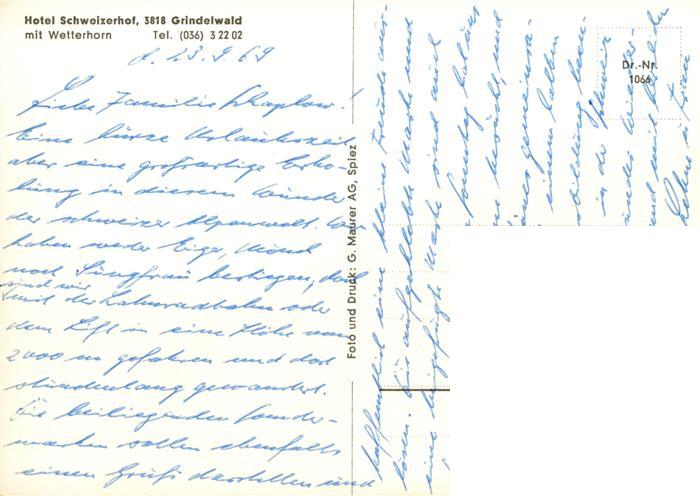 Hotel Schweizerhof, 3818 Grindelwald
mit Wetterhorn Tel. (036) 3 22 02
d. 23.9.69
Liebe Familie Schaplow!
Eine kurze Urlaubszeit
aber eine großartige Erho-
lung in diesem Wunder
der schweizer Alpenwelt. Wir
haben weder Eiger, Mönch
noch Jungfrau bestiegen, doch
sind wir
mit der Zahnradbahn oder
dem Lift in eine Höhe von
2000 m gefahren und dort
stundenlang gewandert.
Die beiliegenden Sonder-
marken sollen ebenfalls
einen Gruß darstellen und
Foto und Druck: G. Maurer AG, Spiez
hoffentlich eine kleine Freude aus-
lösen. Die aufgeklebte Marke und
eine beigefügte Marke sind auch
Sonntag hat uns
besucht, und
einen halben
in der
und
Dr.-Nr.
1066